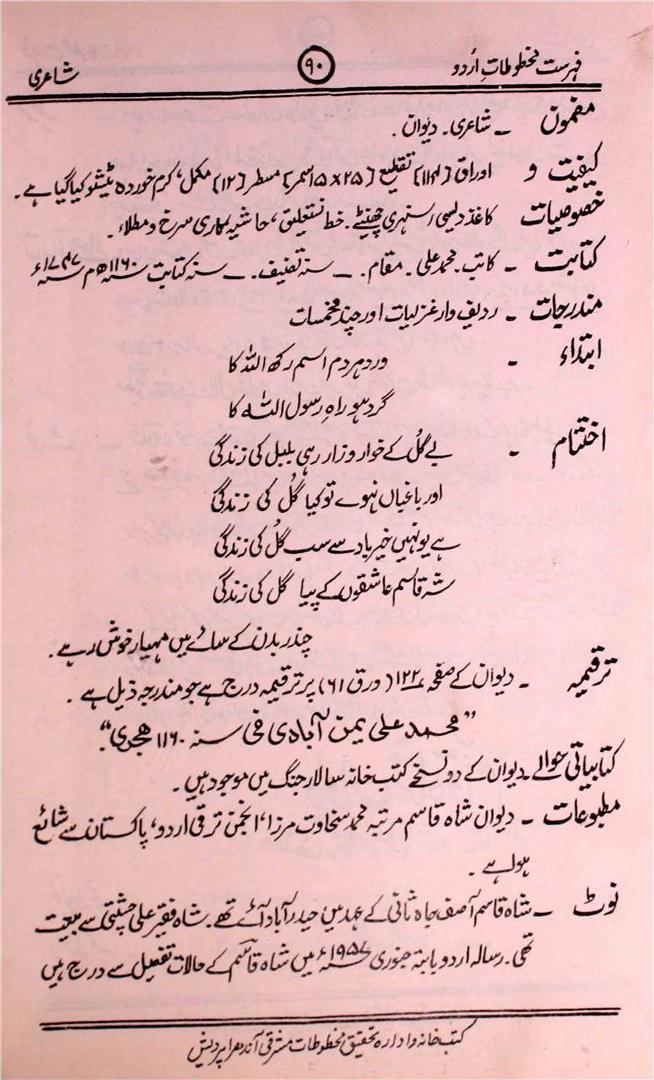 فہرست مخطوطاتِ اُردو ۹۰ شاعری
مضمون - شاعری۔ دیوان۔
کیفیت و اوراق (۱۱۴) تقطیع [۲۵×۱۵سمر] مسطر (۱۲) مکمل، کرم خوردہ ٹیشو کیا گیا ہے۔
خصوصیات کاغذ دیسی سنہری چھینٹے۔ خط نستعلیق، حاشیہ کاری سرخ و مطلاء۔
کتابت - کاتب۔ محمد علی۔ مقام۔ - سنہ تصنیف۔ - سنہ کتابت ۱۱۶۰ھ م ۱۷۴۷ء
مندرجات - ردیف وار غزلیات اور چند مخمسات
ابتداء - ورد ہردم اسم رکھ اللہ کا
گرد ہو راہِ رسول اللہ کا
اختتام - بے گُل کے خوار و زار رہی بلبل کی زندگی
اور باغباں نہوے تو کیا گُل کی زندگی
ہے یونہیں خیرباد سے سب گُل کی زندگی
شہ قاسم عاشقوں کے پیا گل کی زندگی
چندر بدن کے سائے میں مہیار خوش رہے۔
ترقیمہ - دیوان کے صفحہ ۱۲۲ (ورق ۶۱) پر ترقیمہ درج ہے جو مندرجہ ذیل ہے۔
"محمد علی یمن آبادی فی سنہ ۱۱۶۰ ہجری"۔
کتابیاتی حوالے - دیوان کے دو نسخے کتب خانہ سالار جنگ میں موجود ہیں۔
مطبوعات - دیوان شاہ قاسم مرتبہ محمد سخاوت مرزا، انجمن ترقی اردو، پاکستان سے شائع
ہوا ہے۔
نوٹ - شاہ قاسم آصف جاہ ثانی کے عہد میں حیدرآباد آئے تھے۔ شاہ فقیر علی چشتی سے بیعت
تھی۔ رسالہ اردو بابتہ جنوری ۱۹۵۷ء میں شاہ قاسم کے حالات تفصیل سے درج ہیں
کتب خانہ و ادارہ تحقیق مخطوطات مشرقی آندھرا پردیش